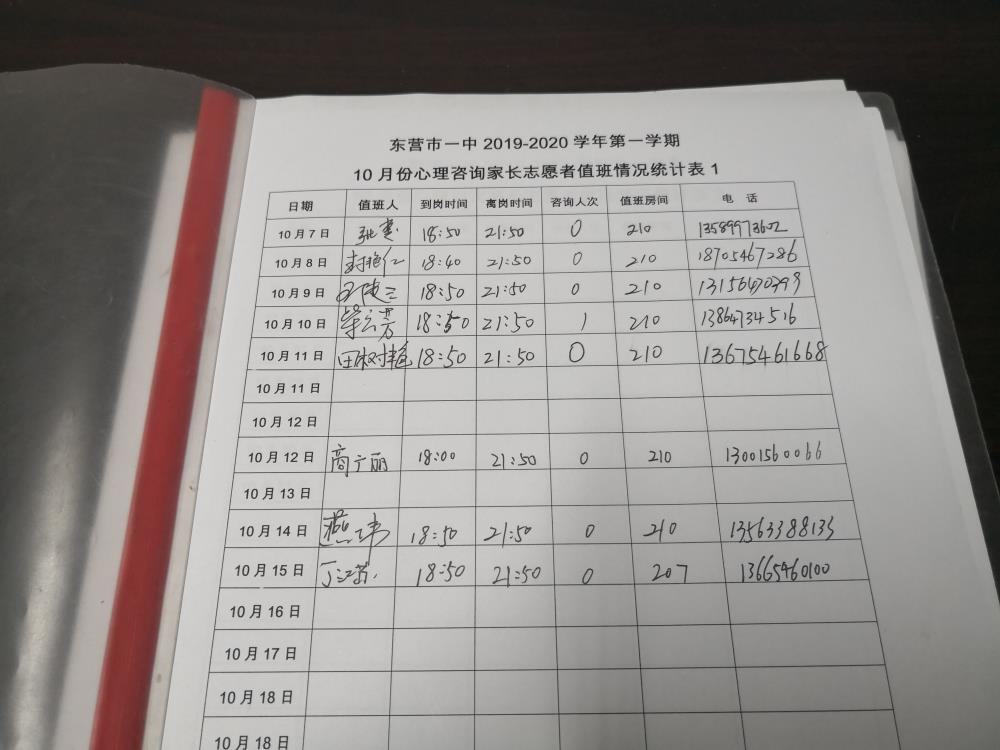 东营市一中 2019-2020 学年第一学期
10 月份心理咨询家长志愿者值班情况统计表 1
日期 值班人 到岗时间 离岗时间 咨询人次 值班房间 电 话
10 月 7 日 18:50 21:50 0 210 13589973602
10 月 8 日 封艳仁 18:40 21:50 0 210 18705467286
10 月 9 日 18:50 21:50 0 210
10 月 10 日 18:50 21:50 1 210 13864734516
10 月 11 日 田树艳 18:50 21:50 0 210 13675461668
10 月 11 日
10 月 12 日
10 月 12 日 高广丽 18:00 21:50 0 210 13001560066
10 月 13 日
10 月 14 日 燕玮 18:50 21:50 0 210 13563388133
10 月 15 日 18:50 21:50 0 207 13665460100
10 月 16 日
10 月 17 日
10 月 18 日
10 月 18 日